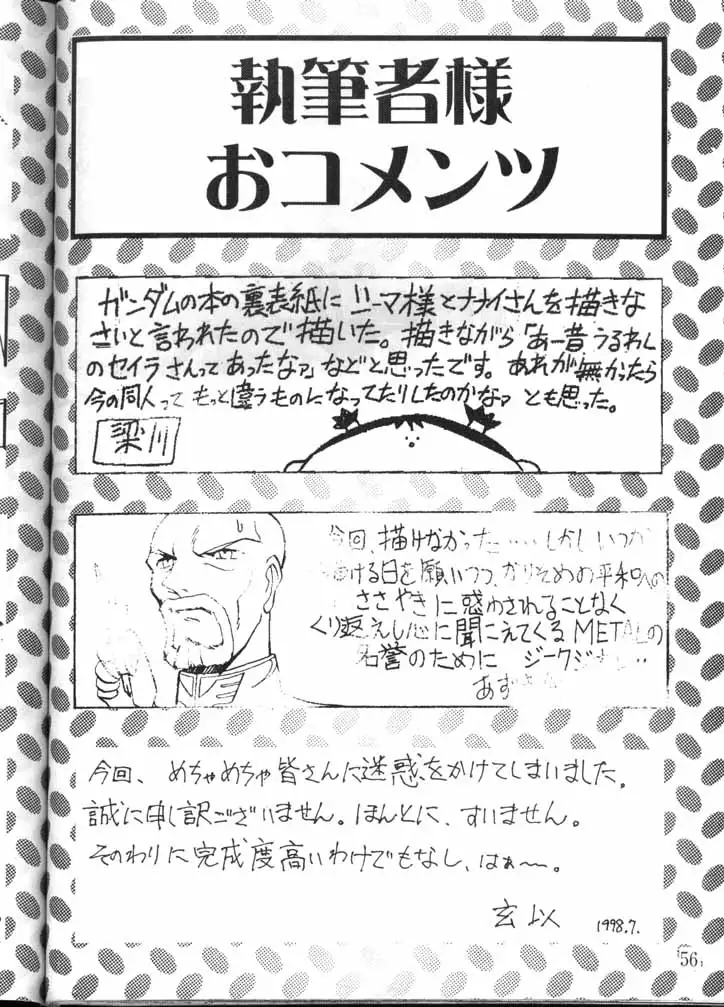 執筆者様
おコメンツ
ガンダムの本の裏表紙にハーマ様とナナイさんを描きな
さいと言われたので描いた。描きながら「あー昔うるわし
のセイラさんってあったなァ」などと思ったです。あれが無かったら
今の同人って もっと違うものになってたりしたのかなァ とも思った。
梁川
今回、描けなかった…… しかし いつか
描ける日を願いつつ、かりそめの平和への
ささやきに惑わされることなく
くり返えし心に聞こえてくる METALの
名誉のために ジークジオン‥
あず
今回、めちゃめちゃ皆さんに迷惑をかけてしまいました。
誠に申し訳ございません。ほんとに、すいません。
そのわりに完成度高いわけでもなし、はぁ〜。
玄以 1998.7.
56